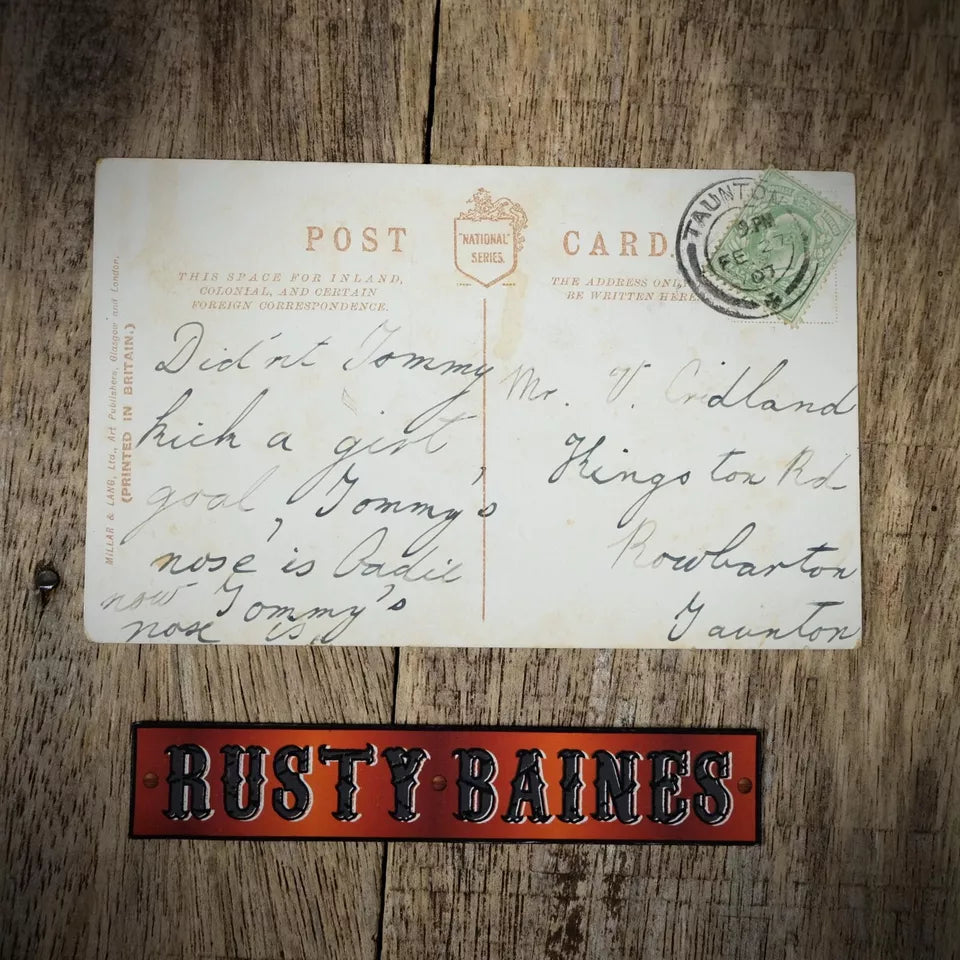 POST
"NATIONAL"
SERIES.
CARD.
THIS SPACE FOR INLAND,
COLONIAL, AND CERTAIN
FOREIGN CORRESPONDENCE.
THE ADDRESS ONL
BE WRITTEN HERE.
TAUNTON
PM
FE 27
07
MILLAR & LANG, Ltd., Art Publishers, Glasgow and London.
(PRINTED IN BRITAIN.)
Did'nt Tommy
kick a girt
goal, Tommy's
nose is
now Tommy's
nose is.
Mr. V. Cridland
Kingston Rd
Rowbarton
Taunton
RUSTY BAINES